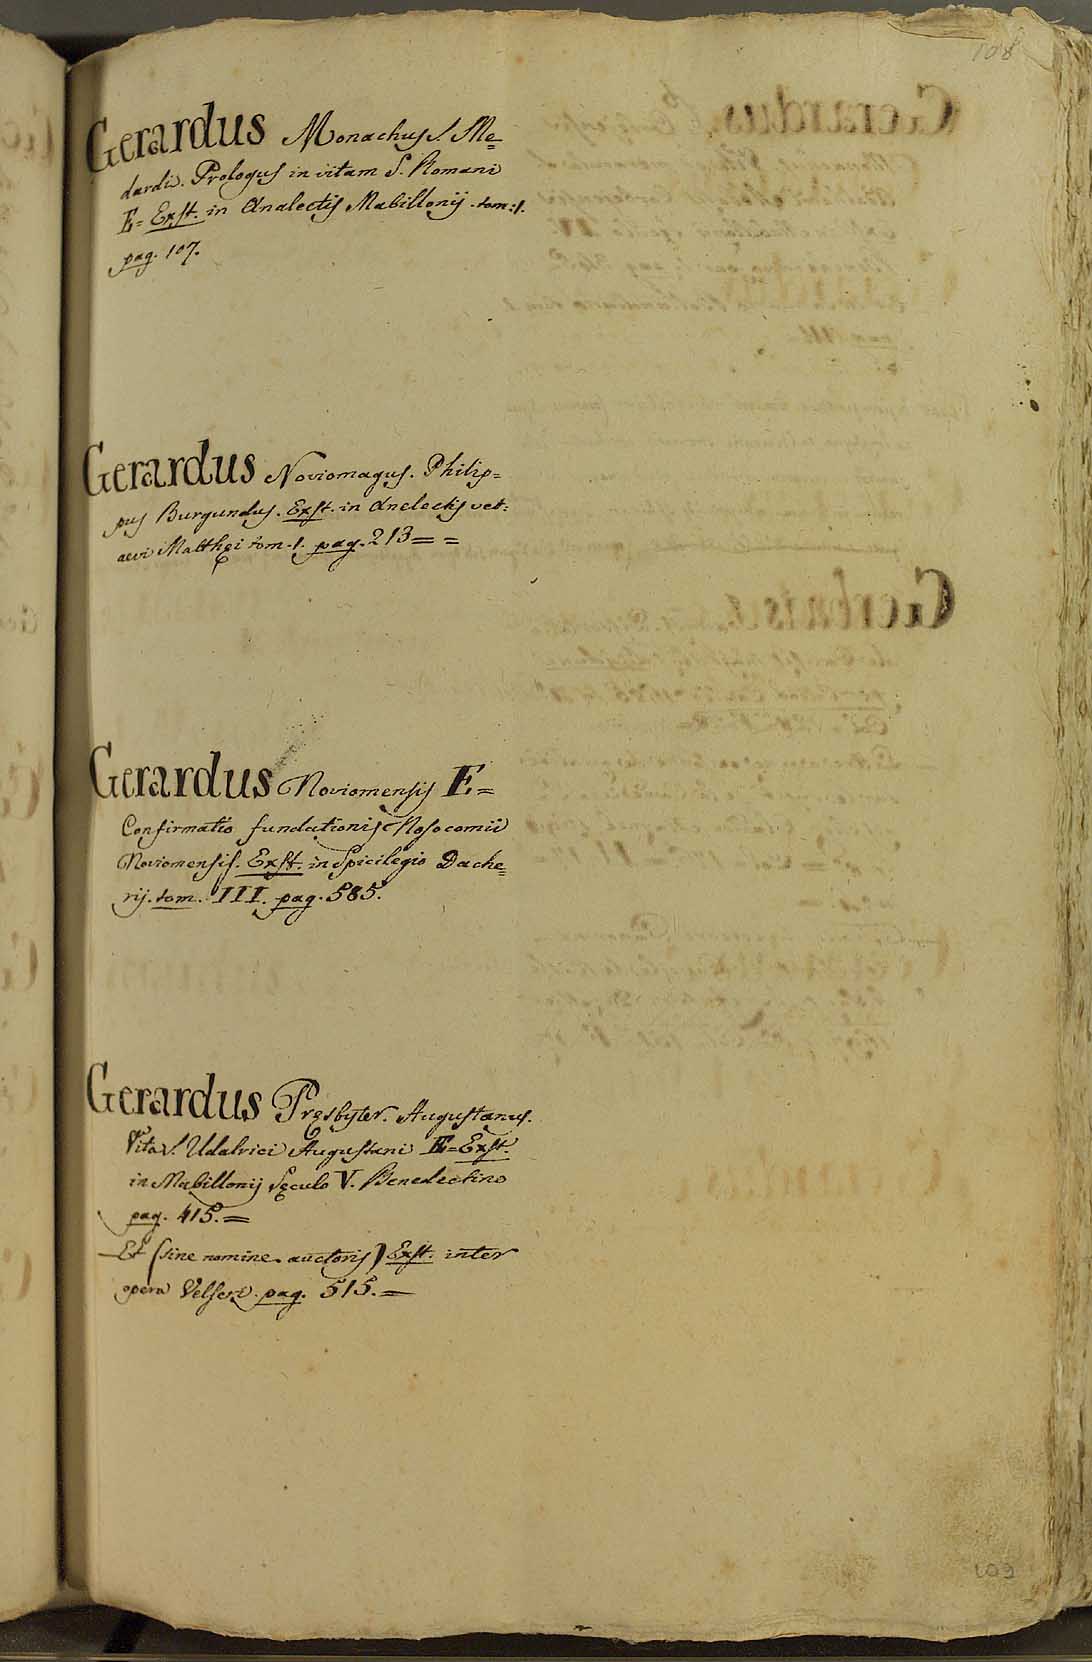 108
Gerardus Monachus S. Me=
dardi. Prologus in vitam S. Romani
E= Exst. in Analectis Mabillonij. tom: 1.
pag. 107.
Gerardus Noviomagus. Philip=
pus Burgundus. Exst. in Anelectis vet:
aevi Matthęi tom. 1. pag. 213= =
Gerardus Noviomensis E=
Confirmatio fundationis Nosocomii
Noviomensis. Exst. in Spicilegio Dache=
rij. tom. III. pag. 585.
Gerardus Pręsbyter. Augustanus.
Vita S. Udalrici Augustani E=Exst.
in Mabillonij Sęculo V. Benedictino
pag. 415.=
Et (sine nomine auctoris) Exst. inter
opera Velseri. pag. 515.=
109